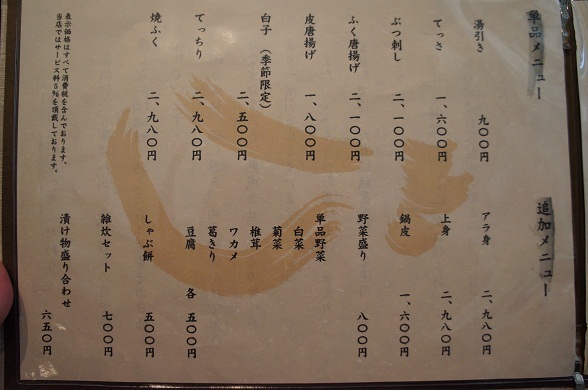 単品メニュー
湯引き 九〇〇円
てっさ 一、六〇〇円
ぶつ刺し 二、一〇〇円
ふく唐揚げ 二、一〇〇円
皮唐揚げ 一、八〇〇円
白子（季節限定） 二、五〇〇円
てっちり 二、九八〇円
焼ふく 二、九八〇円
表示価格はすべて消費税を含んでおります。
当店ではサービス料5％を頂戴しております。
追加メニュー
アラ身 二、九八〇円
上身 二、九八〇円
鍋皮 一、六〇〇円
野菜盛り 八〇〇円
単品野菜
白菜
菊菜
椎茸
ワカメ
葛きり
豆腐 各 五〇〇円
しゃぶ餅 五〇〇円
雑炊セット 七〇〇円
漬け物盛り合わせ 六五〇円